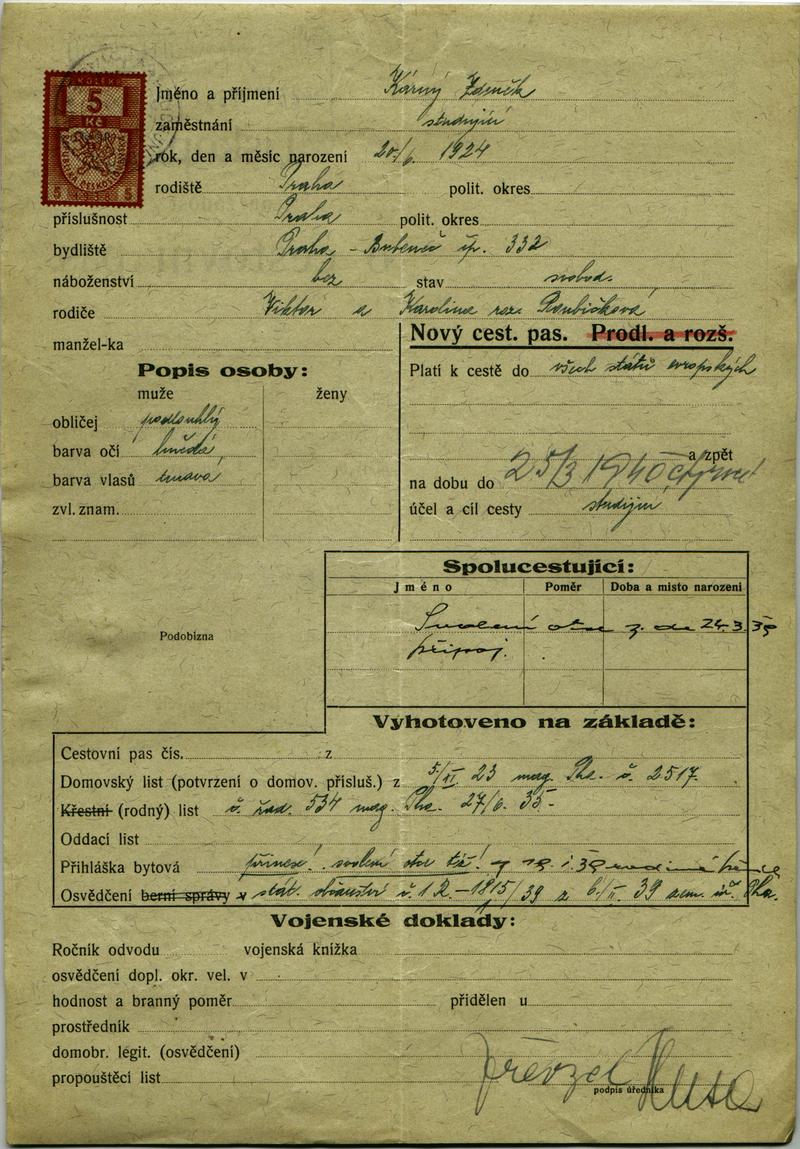 KOLEK
5
Kč
5 1938 5
Jméno a příjmení Kárný Zdeněk
zaměstnání studující
rok, den a měsíc narození 20./6. 1924
rodiště Praha polit. okres
příslušnost Praha polit. okres
bydliště Praha - Bubeneč čp. 332
náboženství bez stav svobod.
rodiče Viktor a Karolina roz. Roubíčková
manžel-ka
Nový cest. pas. Prodl. a rozš.
Popis osoby:
muže ženy
obličej podlouhlý
barva očí hnědá
barva vlasů tmavá
zvl. znam.
Platí k cestě do všech států evropských
a zpět
na dobu do 25/3 1940
účel a cíl cesty studijní
Podobizna
Spolucestující:
Jméno Poměr Doba a místo narození
Svolení otce z. de 24.3.39
připoj.
Vyhotoveno na základě:
Cestovní pas čís. z
Domovský list (potvrzení o domov. přísluš.) z 5/VI. 23 mag. Pha. č. 2517.
Křestní (rodný) list č. řad. 534 mag. Pha. 27/6. 35.-
Oddací list
Přihláška bytová přinese! svolení otce též!
Osvědčení berní správy v stát. občanství č. 12.-1815/39 z 6./II. 39 zem. úř. Pha.
Vojenské doklady:
Ročník odvodu vojenská knížka
osvědčení dopl. okr. vel. v
hodnost a branný poměr přidělen u
prostředník
domobr. legit. (osvědčení)
propouštěcí list
Převzel
podpis úředníka